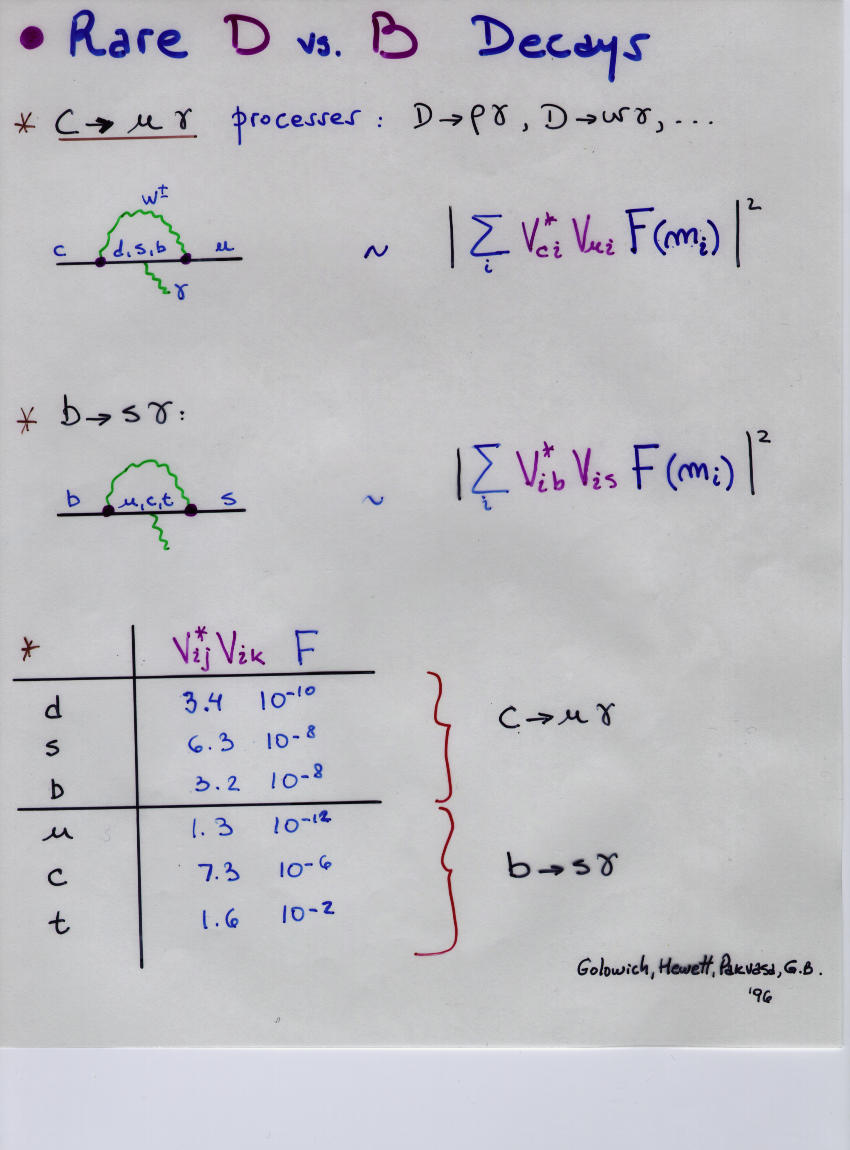 • Rare D vs. B Decays
* C → u γ processes : D → ργ , D → ωγ, ...
W±
c d, s, b u
γ
~ | ∑_i V*_{ci} V_{ui} F(m_i) |²
* b → s γ :
b u, c, t s
~ | ∑_i V*_{ib} V_{is} F(m_i) |²
* V*_{ij} V_{ik} F
d 3.4 10^{-10}
s 6.3 10^{-8}
b 3.2 10^{-8}
c → u γ
u 1.3 10^{-12}
c 7.3 10^{-6}
t 1.6 10^{-2}
b → s γ
Golowich, Hewett, Pakvasa, G.B.
'96